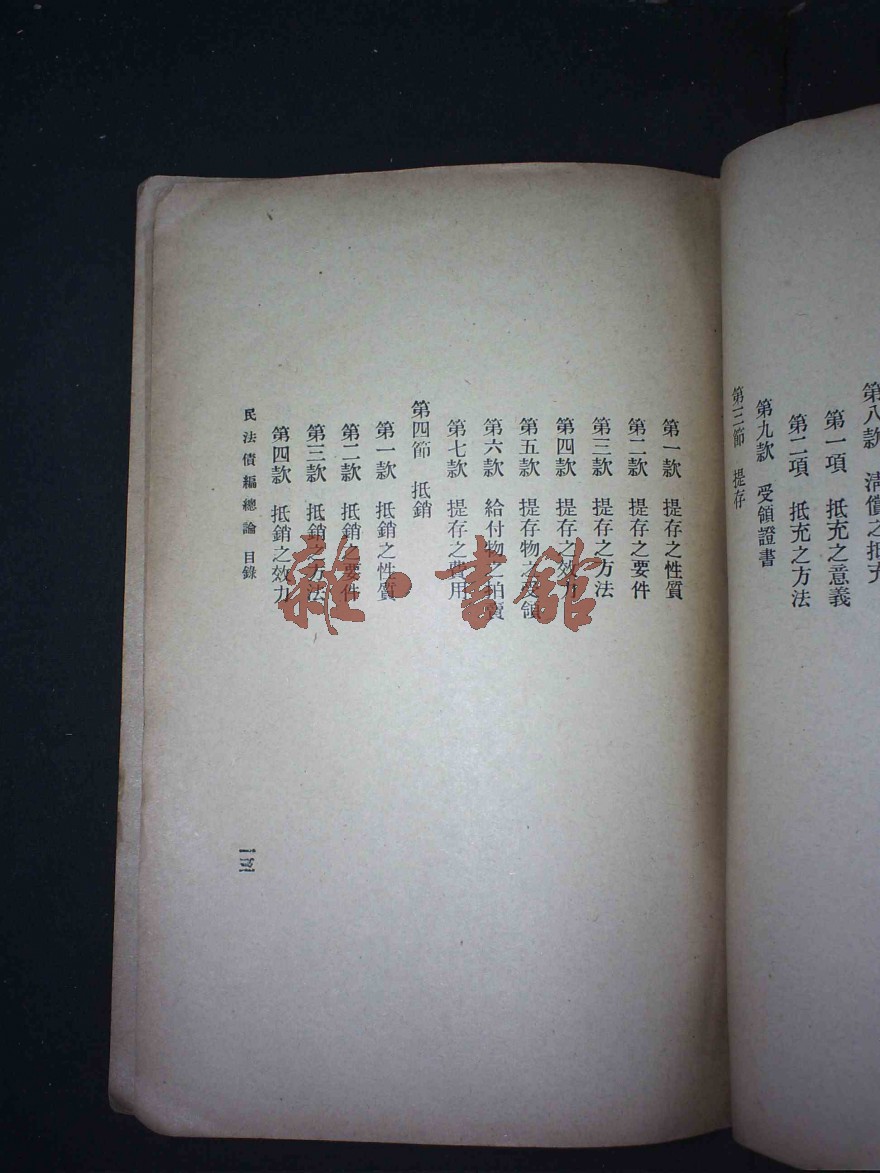 第八款　清償之抵充
第一項　抵充之意義
第二項　抵充之方法
第九款　受領證書
第三節　提存
第一款　提存之性質
第二款　提存之要件
第三款　提存之方法
第四款　提存之效力
第五款　提存物之受領
第六款　給付物之拍賣
第七款　提存之費用
第四節　抵銷
第一款　抵銷之性質
第二款　抵銷之要件
第三款　抵銷之方法
第四款　抵銷之效力
民法債編總論　目錄
雜·書館